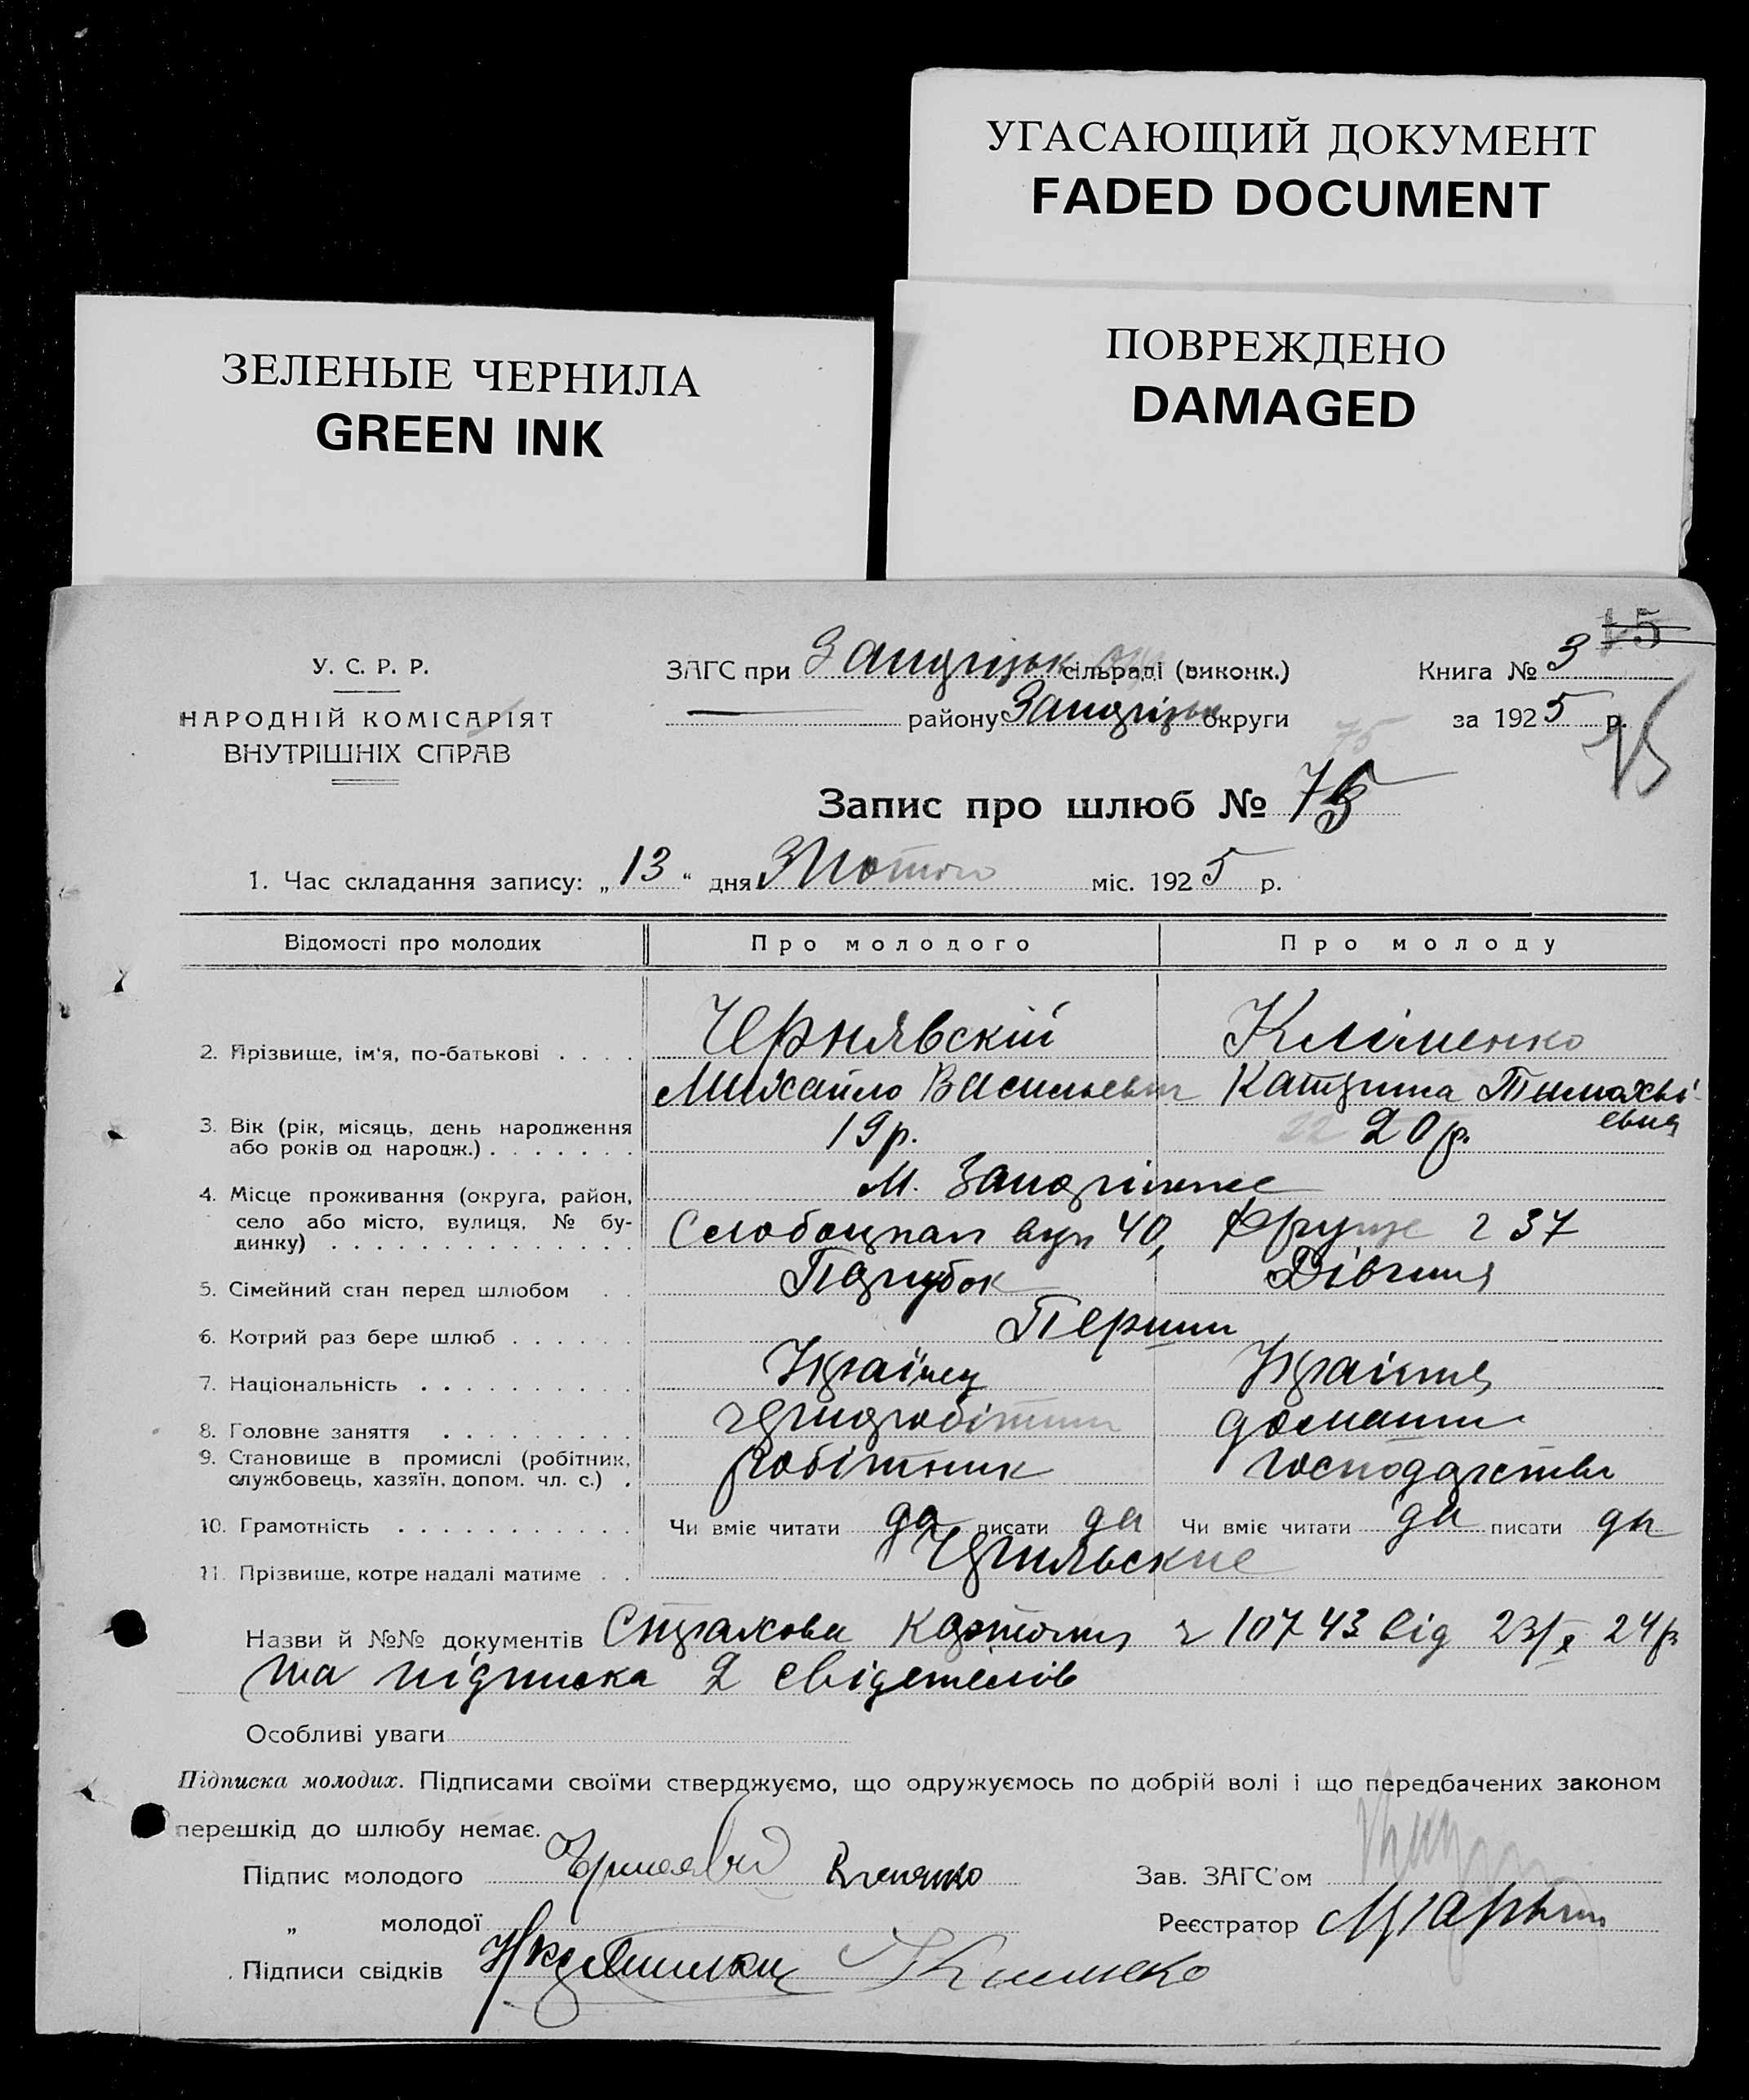 УГАСАЮЩИЙ ДОКУМЕНТ
FADED DOCUMENT
ЗЕЛЕНЫЕ ЧЕРНИЛА
GREEN INK
ПОВРЕЖДЕНО
DAMAGED
15
У. С. Р. Р.
НАРОДНІЙ КОМІСАРІЯТ
ВНУТРІШНІХ СПРАВ
ЗАГС при сільраді (виконк.) Книга № 3
району округи за 1925 р.
75
75
Запис про шлюб № 75
1. Час складання запису: „13“ дня Лютого міс. 1925 р.
Відомості про молодих Про молодого Про молоду
2. Прізвище, ім'я, по-батькові . . . . Чернявскій Кліменко
Михайло Васильевич Катрина Тимохві-
евна
3. Вік (рік, місяць, день народження
або років од народж.) . . . . . . . 19 р. 22 20 р.
4. Місце проживання (округа, район,
село або місто, вулиця, № бу-
динку) . . . . . . . . . . . . . . м. Запоріжже
Слободская вул 40, Фрунзе 37
5. Сімейний стан перед шлюбом . . Парубок Дівчина
6. Котрий раз бере шлюб . . . . . . Перший
7. Національність . . . . . . . . . . Українец Украінка
8. Головне заняття . . . . . . . . . чорноробітник домашн
9. Становище в промислі (робітник,
службовець, хазяїн, допом. чл. с.) . робітник господарство
10. Грамотність . . . . . . . . . . . Чи вміє читати да писати да Чи вміє читати да писати да
11. Прізвище, котре надалі матиме . . Чернявские
Назви й №№ документів Страхова карточка 10743 від 23/X 24 р
та підписка 2 свідетелів
Особливі уваги
Підписка молодих. Підписами своїми стверджуємо, що одружуємось по добрій волі і що передбачених законом
перешкід до шлюбу немає.
Підпис молодого Зав. ЗАГС'ом
„ молодої Реєстратор
Підписи свідків